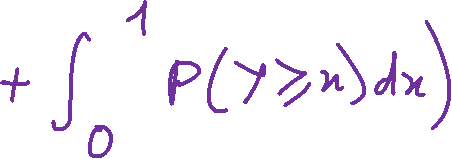 + ∫_0^1 P(Y ⩾ x) dx)